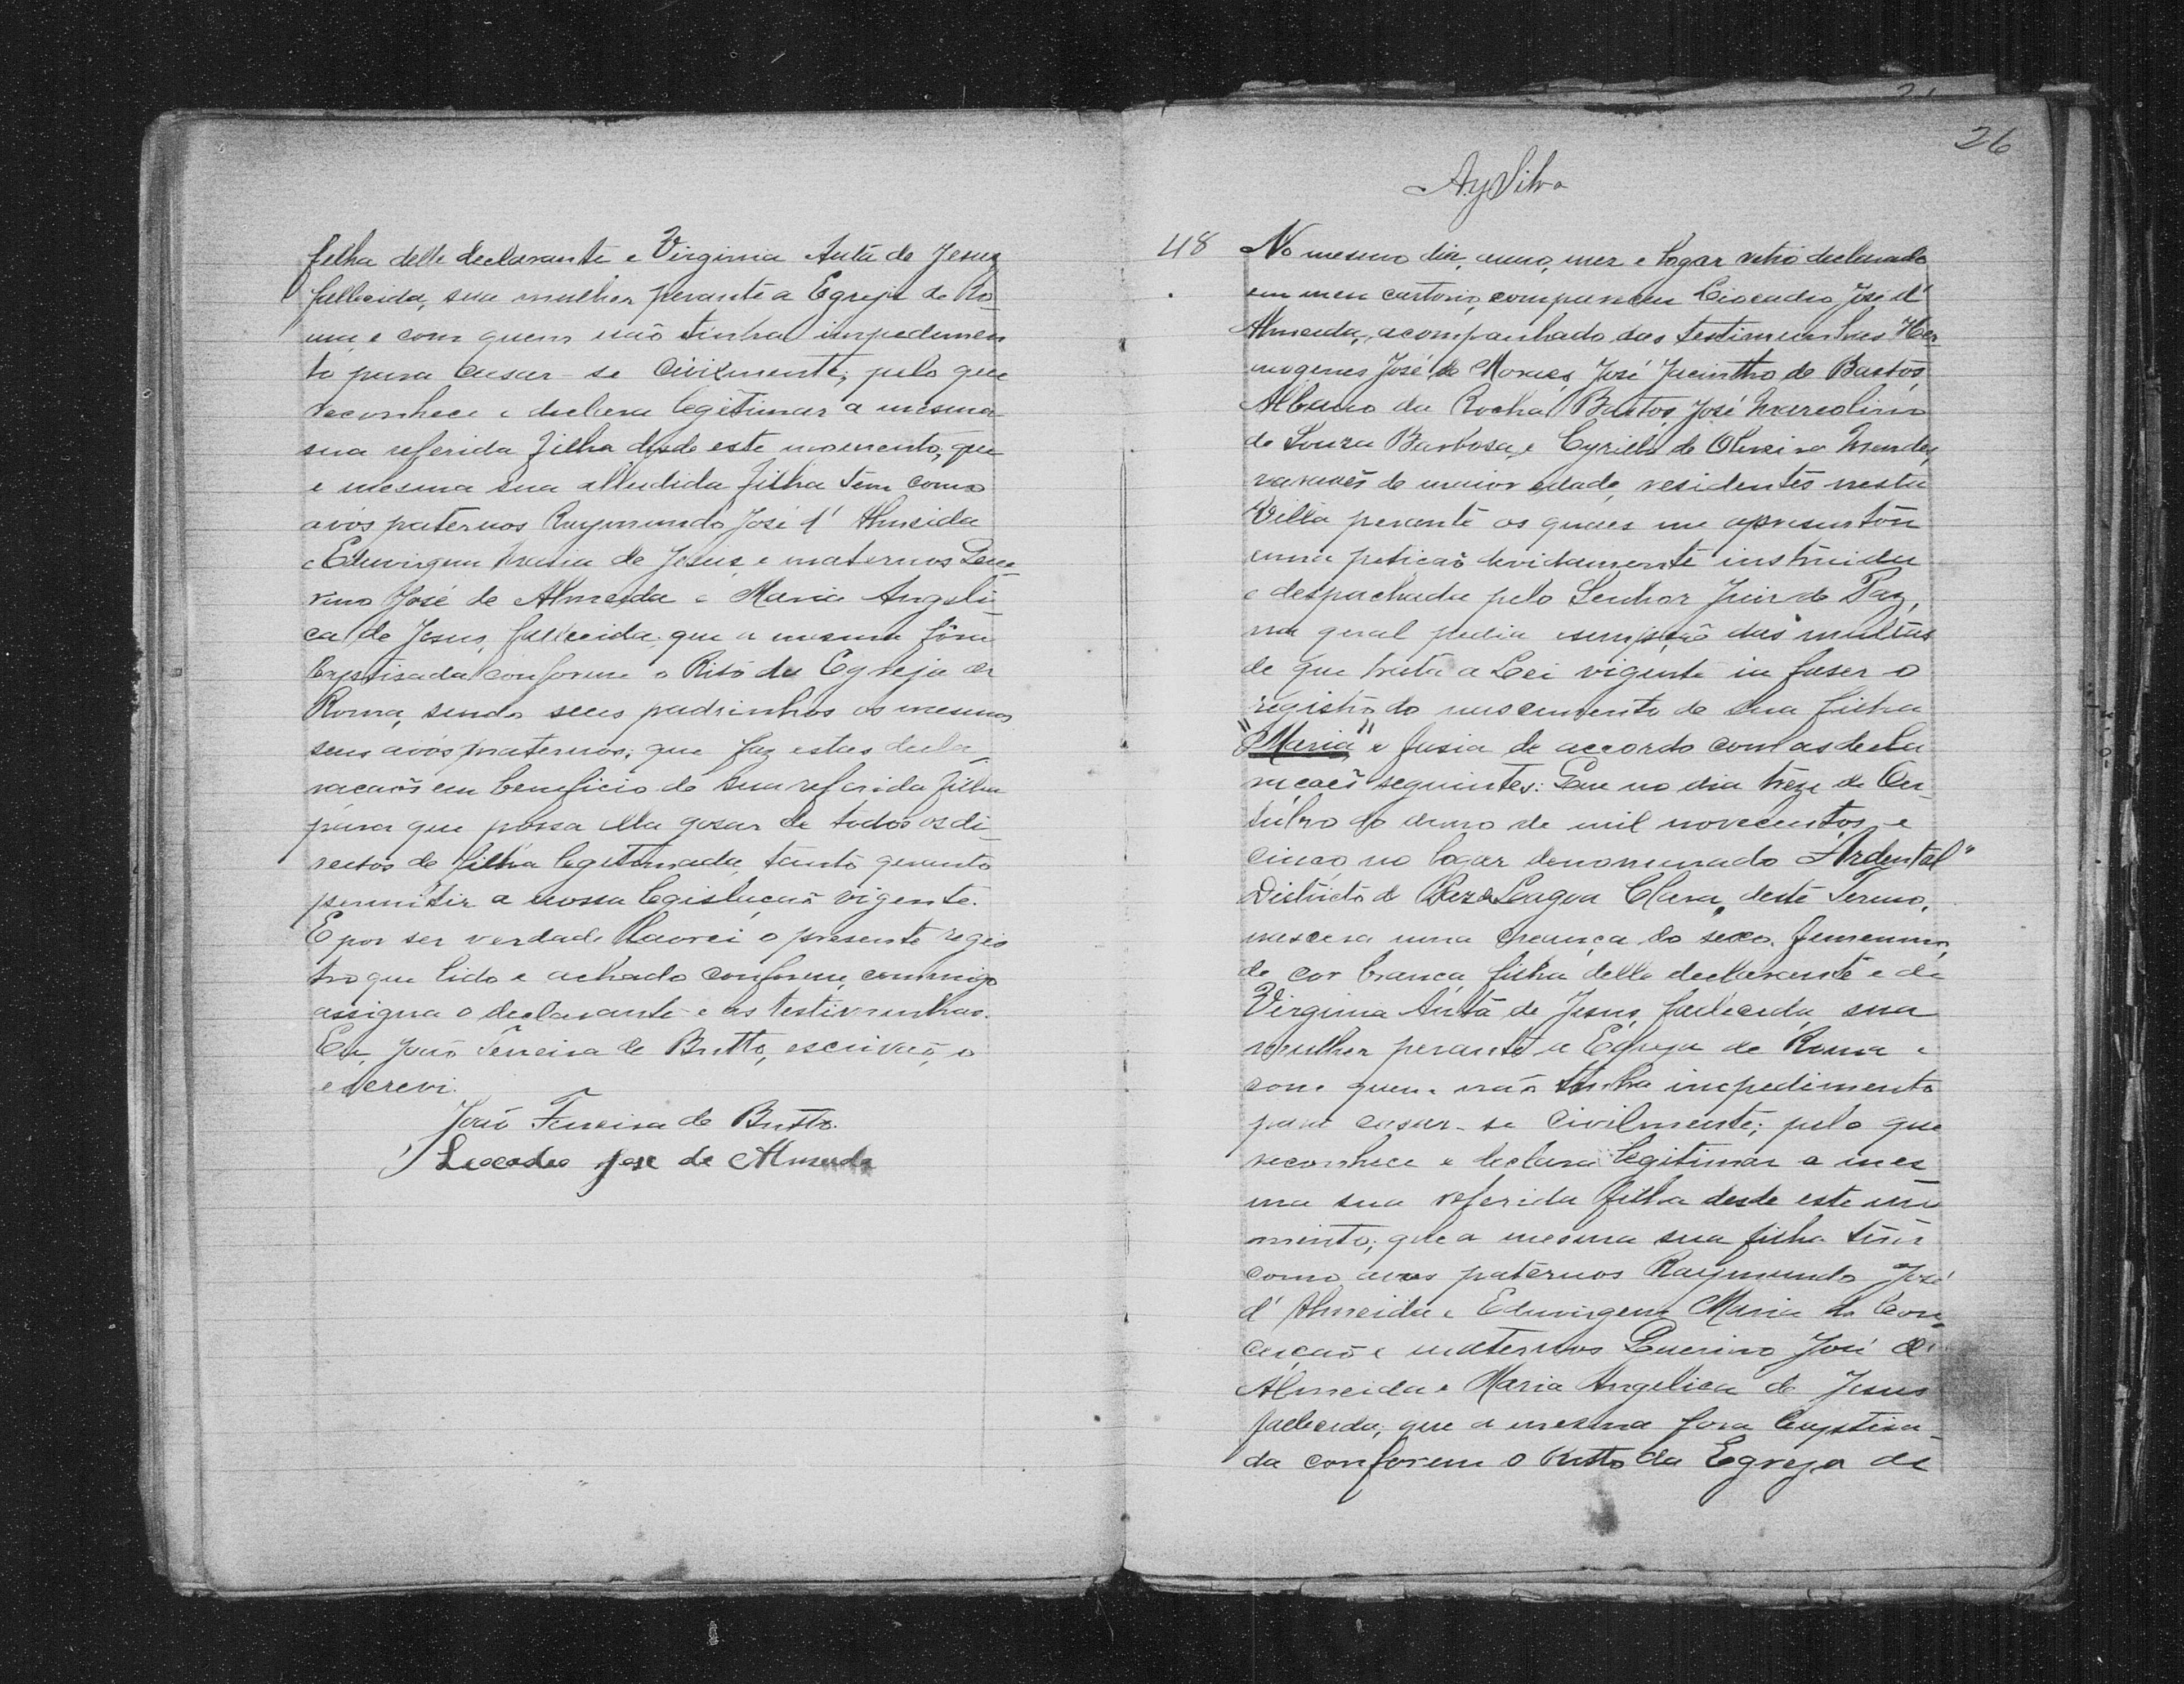 felha delle declarante e Virginia Antã de Jesus
fallecida, sua mulher perante a Egreja de Ro-
ma, e com quem não tinha impedimen
to para casar-se civilmente; pelo que
reconhece e declara legitimar a mesma
sua referida filha desde este momento; que
e mesma sua alludida filha tem como
avós paternos Raymundo José d' Almeida
e Eduvirgem Maria de Jesus e maternos
José de Almeida e Maria Angeli-
ca de Jesus, fallecida; que a mesma fôra
baptisada conforme o Rito da Egreja de
Roma, sendo seus padrinhos os mesmos
seus avós maternos; que faz estas decla-
racaõs em beneficio de sua referida filha
para que possa ella gosar de todos os di-
reitos de filha legitimada, tanto quanto
permitir a nossa legislacaõ vigente.
E por ser verdade lavrei o presente regis
tro que lido e achado conforme, commigo
assigna o declarante e as testimunhas.
Eu, João Ferreira de Britto, escrivaõ, o
escrevi.
João Ferreira de Britto.
Leocadio Jose de Almeida
26
A.y Silva
48 No mesmo dia, anno, mez e logar retro declarado
em meu cartorio, compareceu Leocadio José d'
Almeida, acompanhado das testimunhas Her-
mogenes José de Moraes, José Jacintho de Bastos,
Albano da Rocha Bastos, José Marcolino
de Souza Barbosa, e Cyrillo de Oliveira Mendes,
varaões de maior edade, residentes nesta
Villa perante os quaes me apresentou
uma peticaõ devidamente instruida
e despachada pelo Senhor Juiz de Paz,
na qual pedia isempção das multas
de que trata a Lei vigente ia faser o
registro do nascimento de sua filha
"Maria" e fasia de accordo com as decla
racoẽs seguintes: Que no dia treze de Ou-
tubro do anno de mil novecentos e
cinco no logar denominado "Ardental"
Districto de Paz Lagoa Clara, deste Termo,
nascera uma creança do sexo femenino,
de cor branca, filha delle declarante e de
Virginia Antã de Jesus, fallecida, sua
mulher perante a Egreja de Roma e
com quem não tinha impedimento
para casar-se civilmente; pelo que
reconhece e declara legitimar a mes
ma sua referida filha desde este mo
mento; que a mesma sua filha tem
como avos paternos Raymundo José
d' Almeida e Eduvirgem Maria da Con-
ceiçaõ e maternos José de
Almeida e Maria Angelica de Jesus
fallecida; que a mesma fora baptisa-
da conforme o Ritto da Egreja de